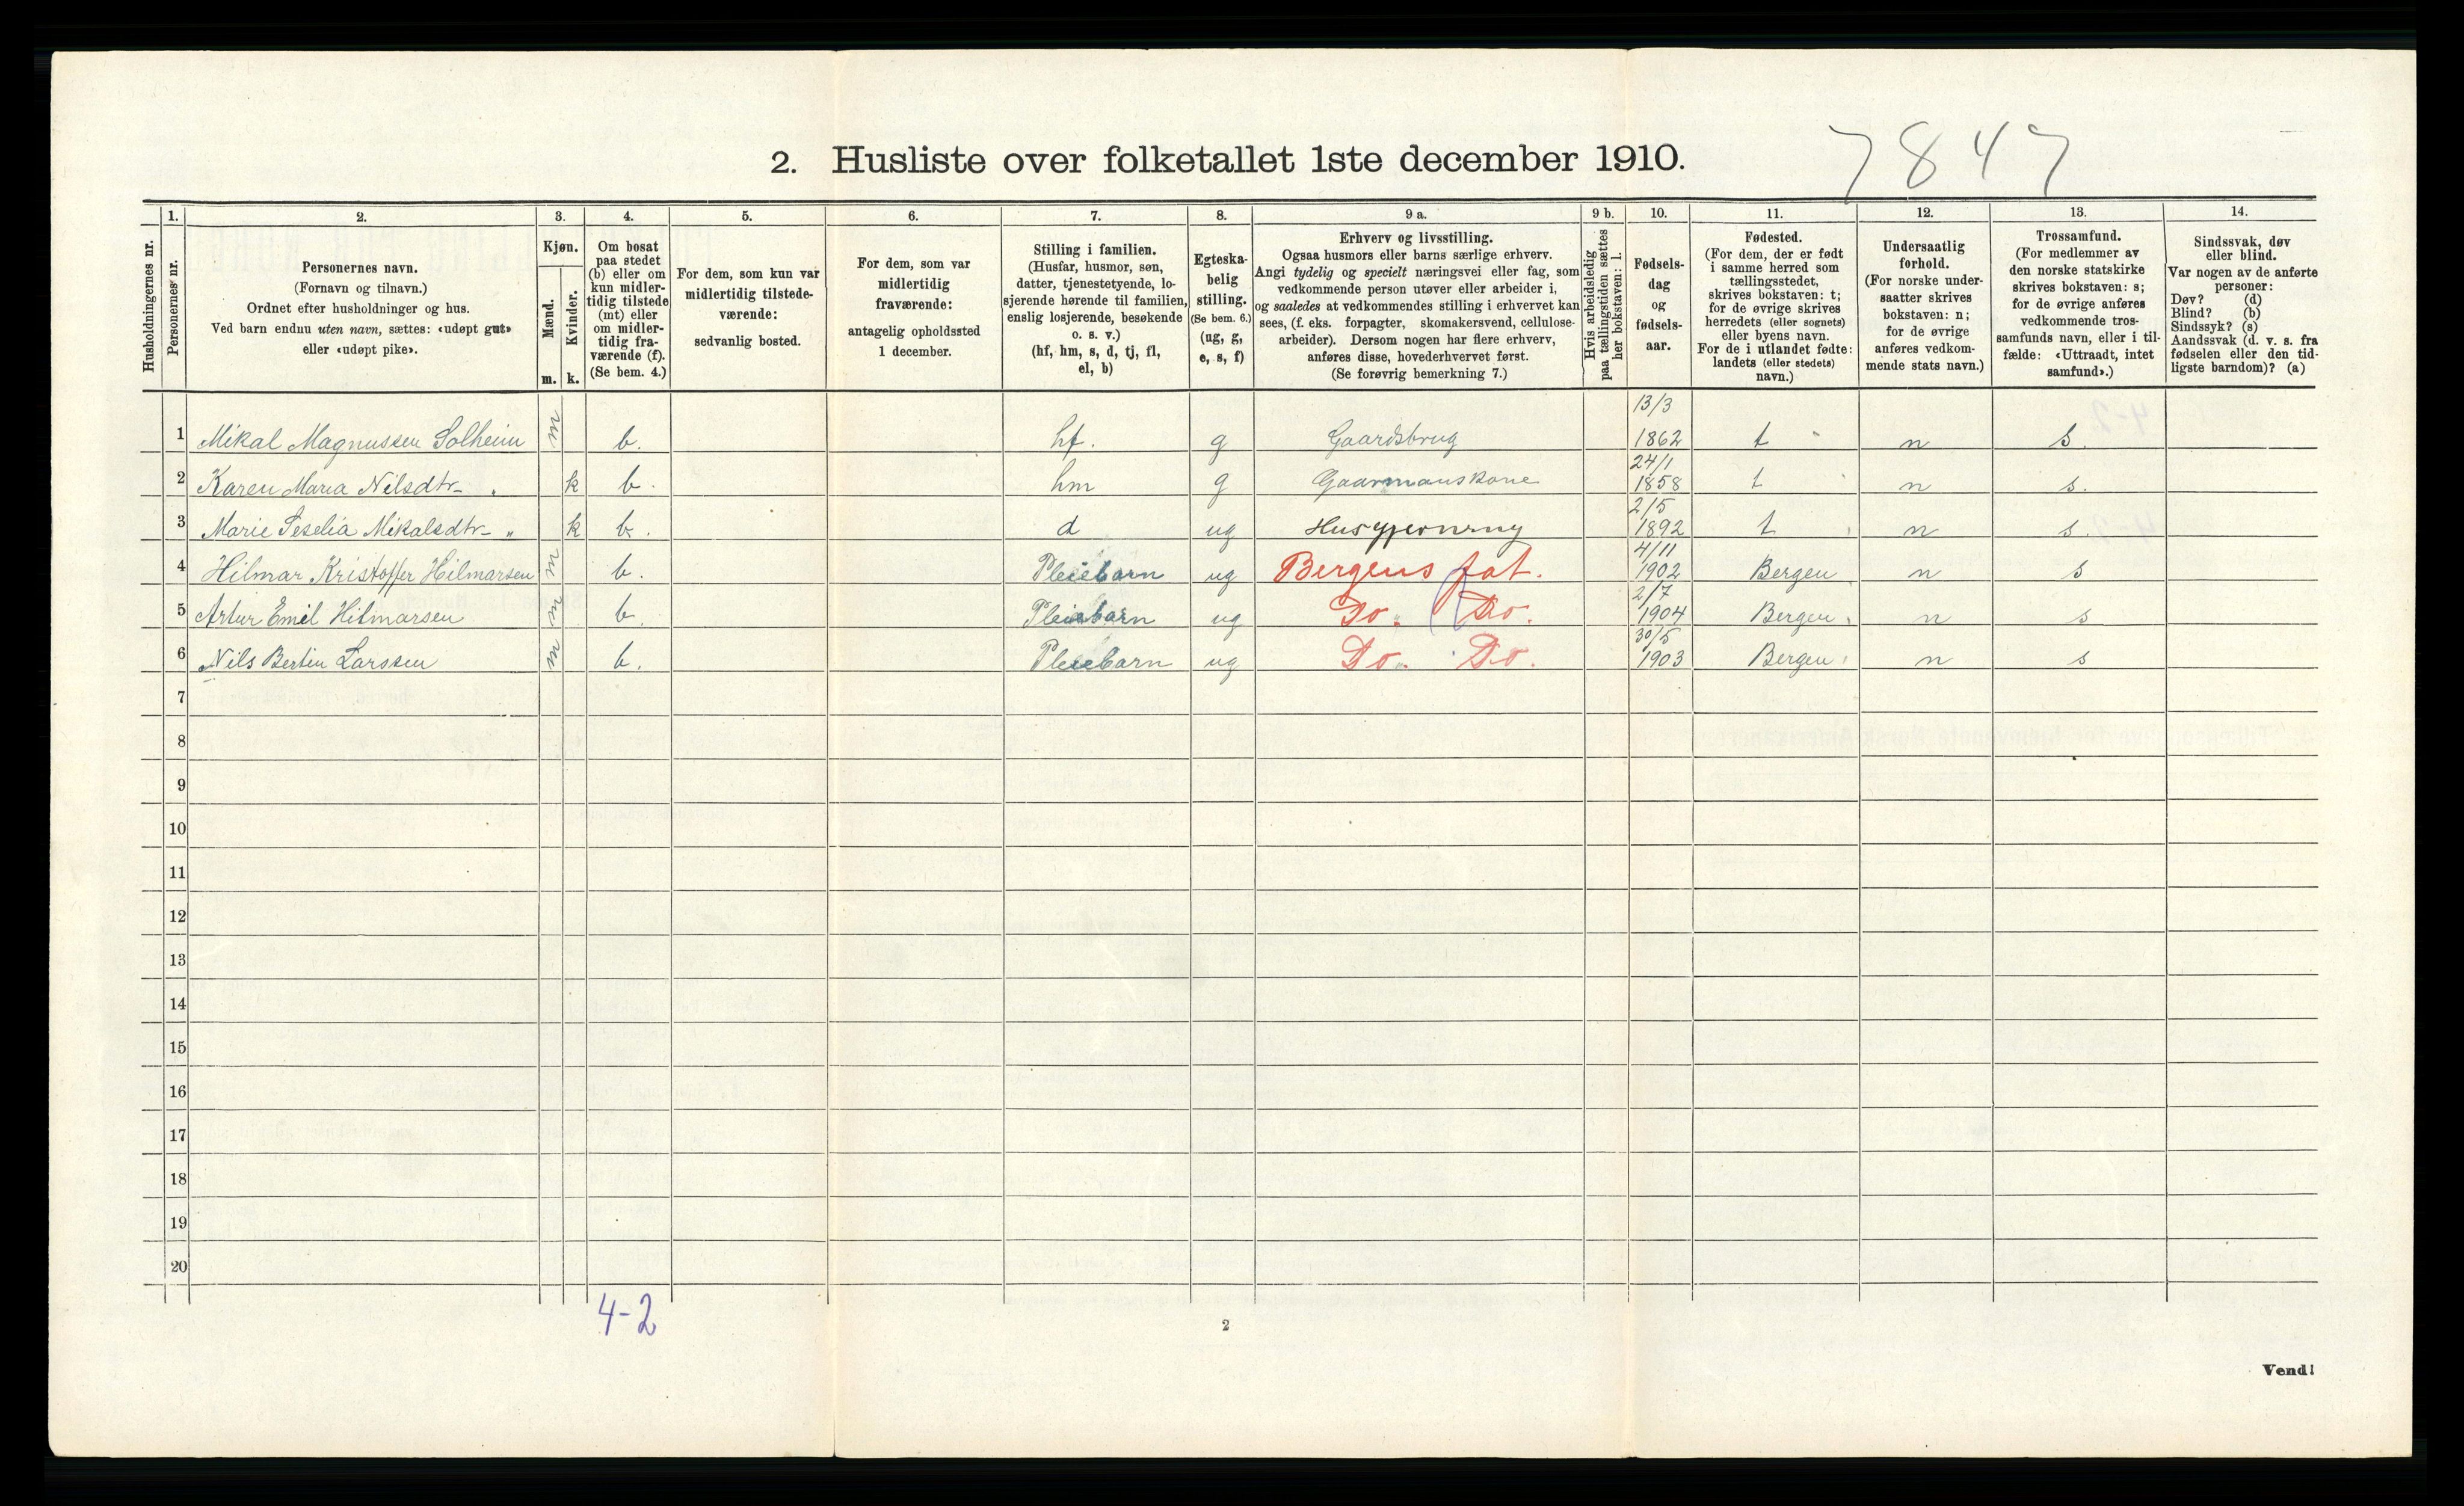 7847
2. Husliste over folketallet 1ste december 1910.
1. 2. 3. 4. 5. 6. 7. 8. 9 a. 9 b. 10. 11. 12. 13. 14.
Husholdningernes nr.
Personernes nr.
Personernes navn.
(Fornavn og tilnavn.)
Ordnet efter husholdninger og hus.
Ved barn endnu uten navn, sættes: «udøpt gut»
eller «udøpt pike».
Kjøn.
Mænd.
Kvinder.
m. k.
Om bosat
paa stedet
(b) eller om
kun midler-
tidig tilstede
(mt) eller
om midler-
tidig fra-
værende (f).
(Se bem. 4.)
For dem, som kun var
midlertidig tilstede-
værende:
sedvanlig bosted.
For dem, som var
midlertidig
fraværende:
antagelig opholdssted
1 december.
Stilling i familien.
(Husfar, husmor, søn,
datter, tjenestetyende, lo-
sjerende hørende til familien,
enslig losjerende, besøkende
o. s. v.)
(hf, hm, s, d, tj, fl,
el, b)
Egteska-
belig
stilling.
(Se bem. 6.)
(ug, g,
e, s, f)
Erhverv og livsstilling.
Ogsaa husmors eller barns særlige erhverv.
Angi tydelig og specielt næringsvei eller fag, som
vedkommende person utøver eller arbeider i,
og saaledes at vedkommendes stilling i erhvervet kan
sees, (f. eks. forpagter, skomakersvend, cellulose-
arbeider). Dersom nogen har flere erhverv,
anføres disse, hovederhvervet først.
(Se forøvrig bemerkning 7.)
Hvis arbeidsledig
paa tællingstiden sættes
her bokstaven: l.
Fødsels-
dag
og
fødsels-
aar.
Fødested.
(For dem, der er født
i samme herred som
tællingsstedet,
skrives bokstaven: t;
for de øvrige skrives
herredets (eller sognets)
eller byens navn.
For de i utlandet fødte:
landets (eller stedets)
navn.)
Undersaatlig
forhold.
(For norske under-
saatter skrives
bokstaven: n;
for de øvrige
anføres vedkom-
mende stats navn.)
Trossamfund.
(For medlemmer av
den norske statskirke
skrives bokstaven: s;
for de øvrige anføres
vedkommende tros-
samfunds navn, eller i til-
fælde: «Uttraadt, intet
samfund».)
Sindssvak, døv
eller blind.
Var nogen av de anførte
personer:
Døv? (d)
Blind? (b)
Sindssyk? (s)
Aandssvak (d. v. s. fra
fødselen eller den tid-
ligste barndom)? (a)
1 Mikal Magnussen Solheim m b. hf. g Gaardsbrug 13/3 1862 t n s.
2 Karen Maria Nilsdtr- " k b. hm g Gaarmanskone 24/1 1858 t n s.
3 Marie Seselia Mikalsdtr- " k b. d ug Husgjerning 2/5 1892 t n s.
4 Hilmar Kristoffer Hilmarsen m b. Pleiebarn ug Bergens fat. 4/11 1902 Bergen n s
5 Artur Emil Hilmarsen m b. Pleiebarn ug Do. Do. 2/7 1904 Bergen n s
6 Nils Bertin Larssen m b. Pleiebarn ug Do. Do. 30/5 1903 Bergen n s
7
8
9
10
11
12
13
14
15
16
17
18
19
20
4-2
2
Vend!